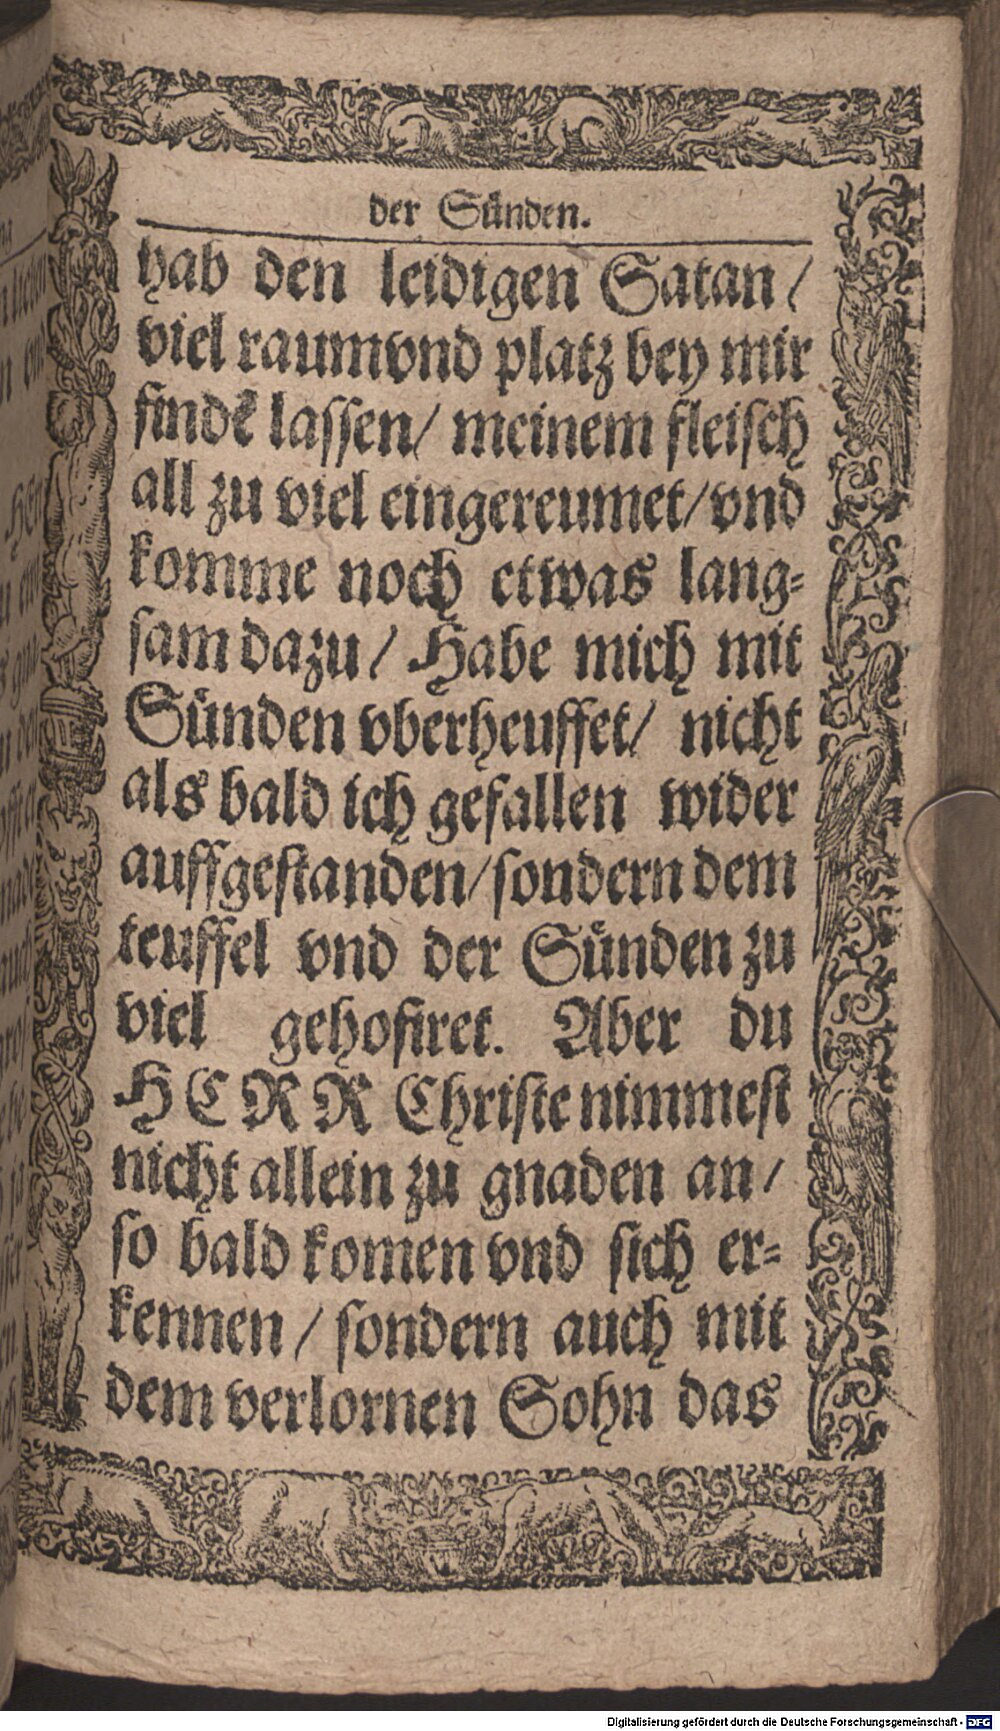 der Sünden.
hab den leidigen Satan/
viel raumvnd platz bey mir
findẽ lassen/ meinem fleisch
all zu viel eingereumet/vnd
komme noch etwas lang=
sam dazu/ Habe mich mit
Sünden vberheuffet/ nicht
als bald ich gefallen wider
auffgestanden/sondern dem
teuffel vnd der Sünden zu
viel gehofiret. Aber du
HERR Christe nimmest
nicht allein zu gnaden an/
so bald komen vnd sich er=
kennen/ sondern auch mit
dem verlornen Sohn das
Digitalisierung gefördert durch die Deutsche Forschungsgemeinschaft - DFG